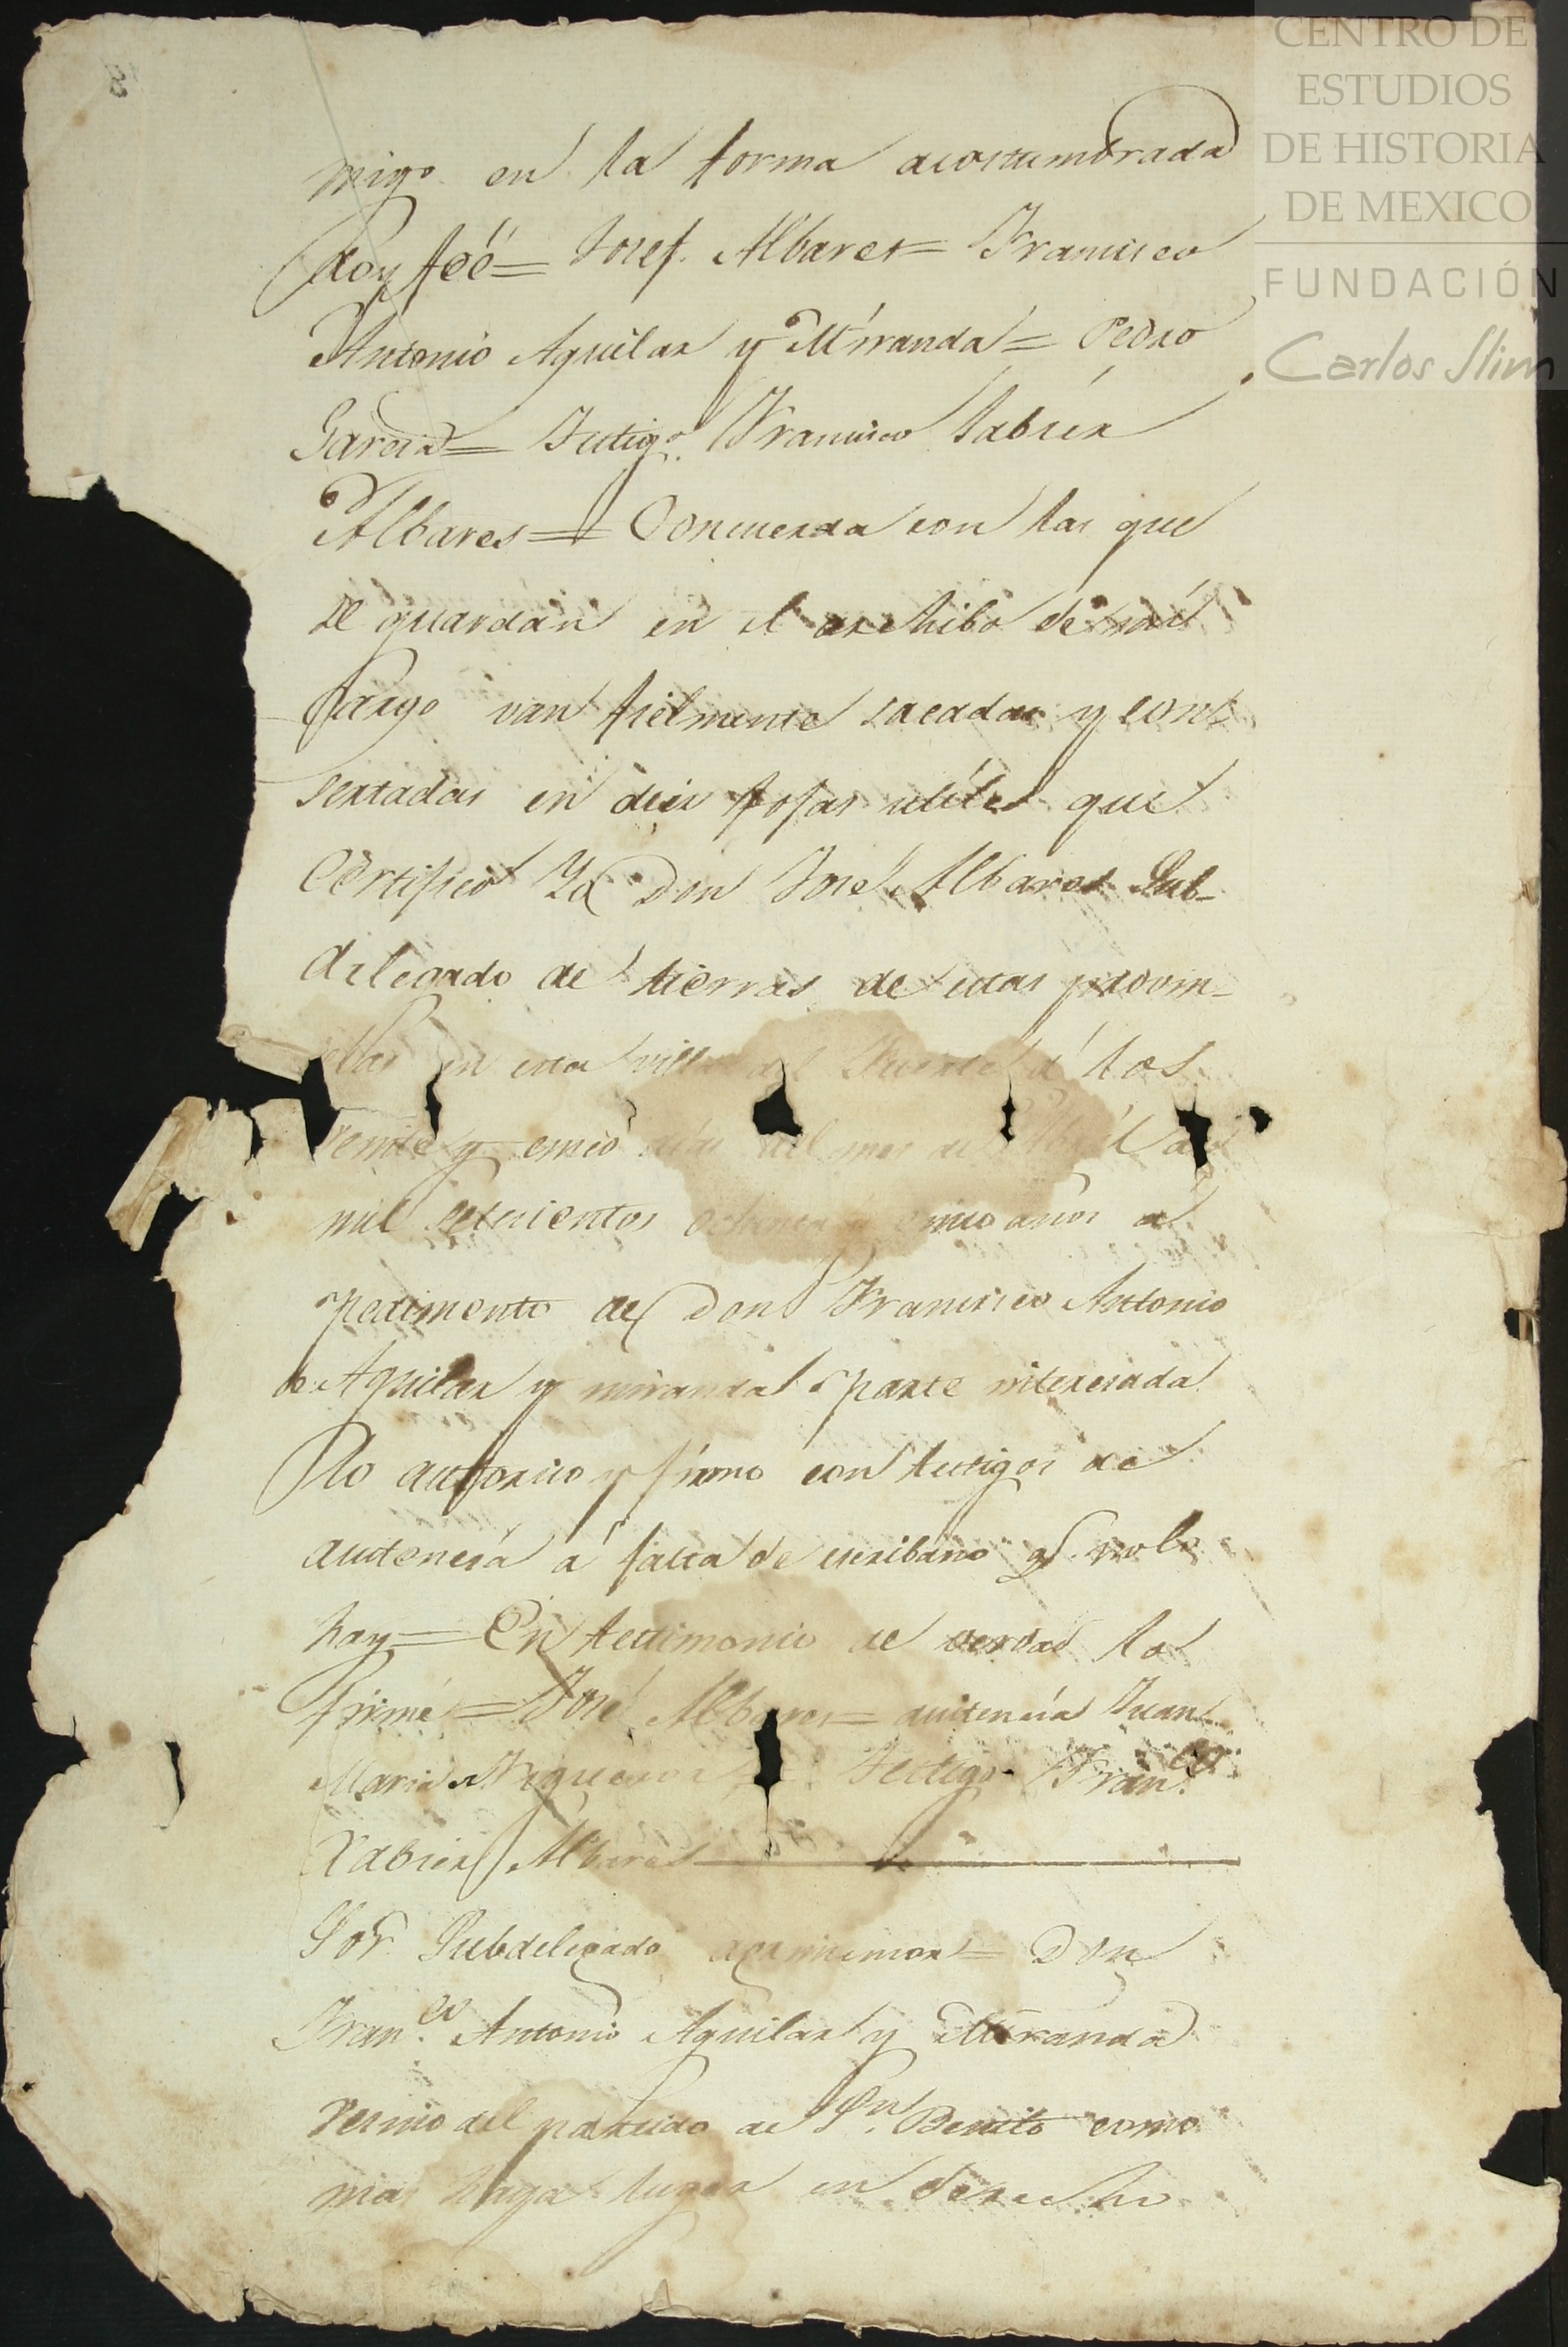 CENTRO DE
ESTUDIOS
DE HISTORIA
DE MEXICO
FUNDACIÓN
Carlos Slim
migo en la forma acostumbrada
doy feé = Josef. Albares = Francisco
Antonio Aguilar y Miranda = Pedro
Garcia = Testigo. Francisco Xabier
Albares = Concuerda con las que
se guardan en el archibo de mi
Cargo van fielmente sacadas y con=
sertadas en dies fojas utiles que
Certifico Yo Don José Albares Sub-
delegado de tierras de estas provin-
cias en esta villa del Fuerte á los
veinte y cinco dias del mes de Abril de
mil setecientos ochenta y cinco años a
pedimento de Don Francisco Antonio
de Aguilar y miranda parte interesada
Yo autorizo y firmo con testigos de
asistencia á falta de escribano q.e no lo
hay = En testimonio de verdad lo
firmé = José Albares = asistencia Juan
Maria Testigo Fran.co
Xabier Albares
Sor. Subdelegado agrimensor = Don
Fran.co Antonio Aguilar y Miranda
vesino del partido de Sn. Benito como
mas haga lugar en derecho